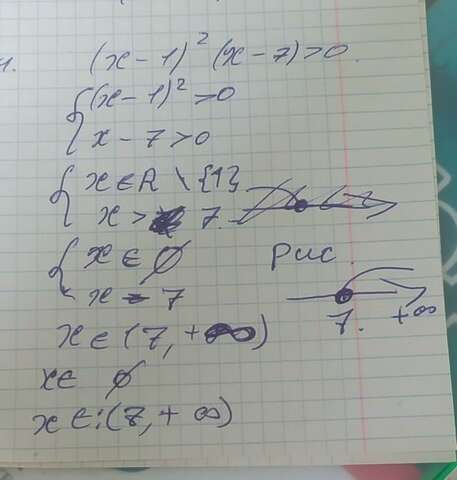 (x - 1)² (x - 7) > 0.
(x - 1)² > 0
x - 7 > 0
x ∈ R \ {1}
x > 7.
x ∈ ∅
Рис.
x = 7
7. +∞
x ∈ (7, +∞)
x ∈ ∅
x ∈: (7, + ∞)